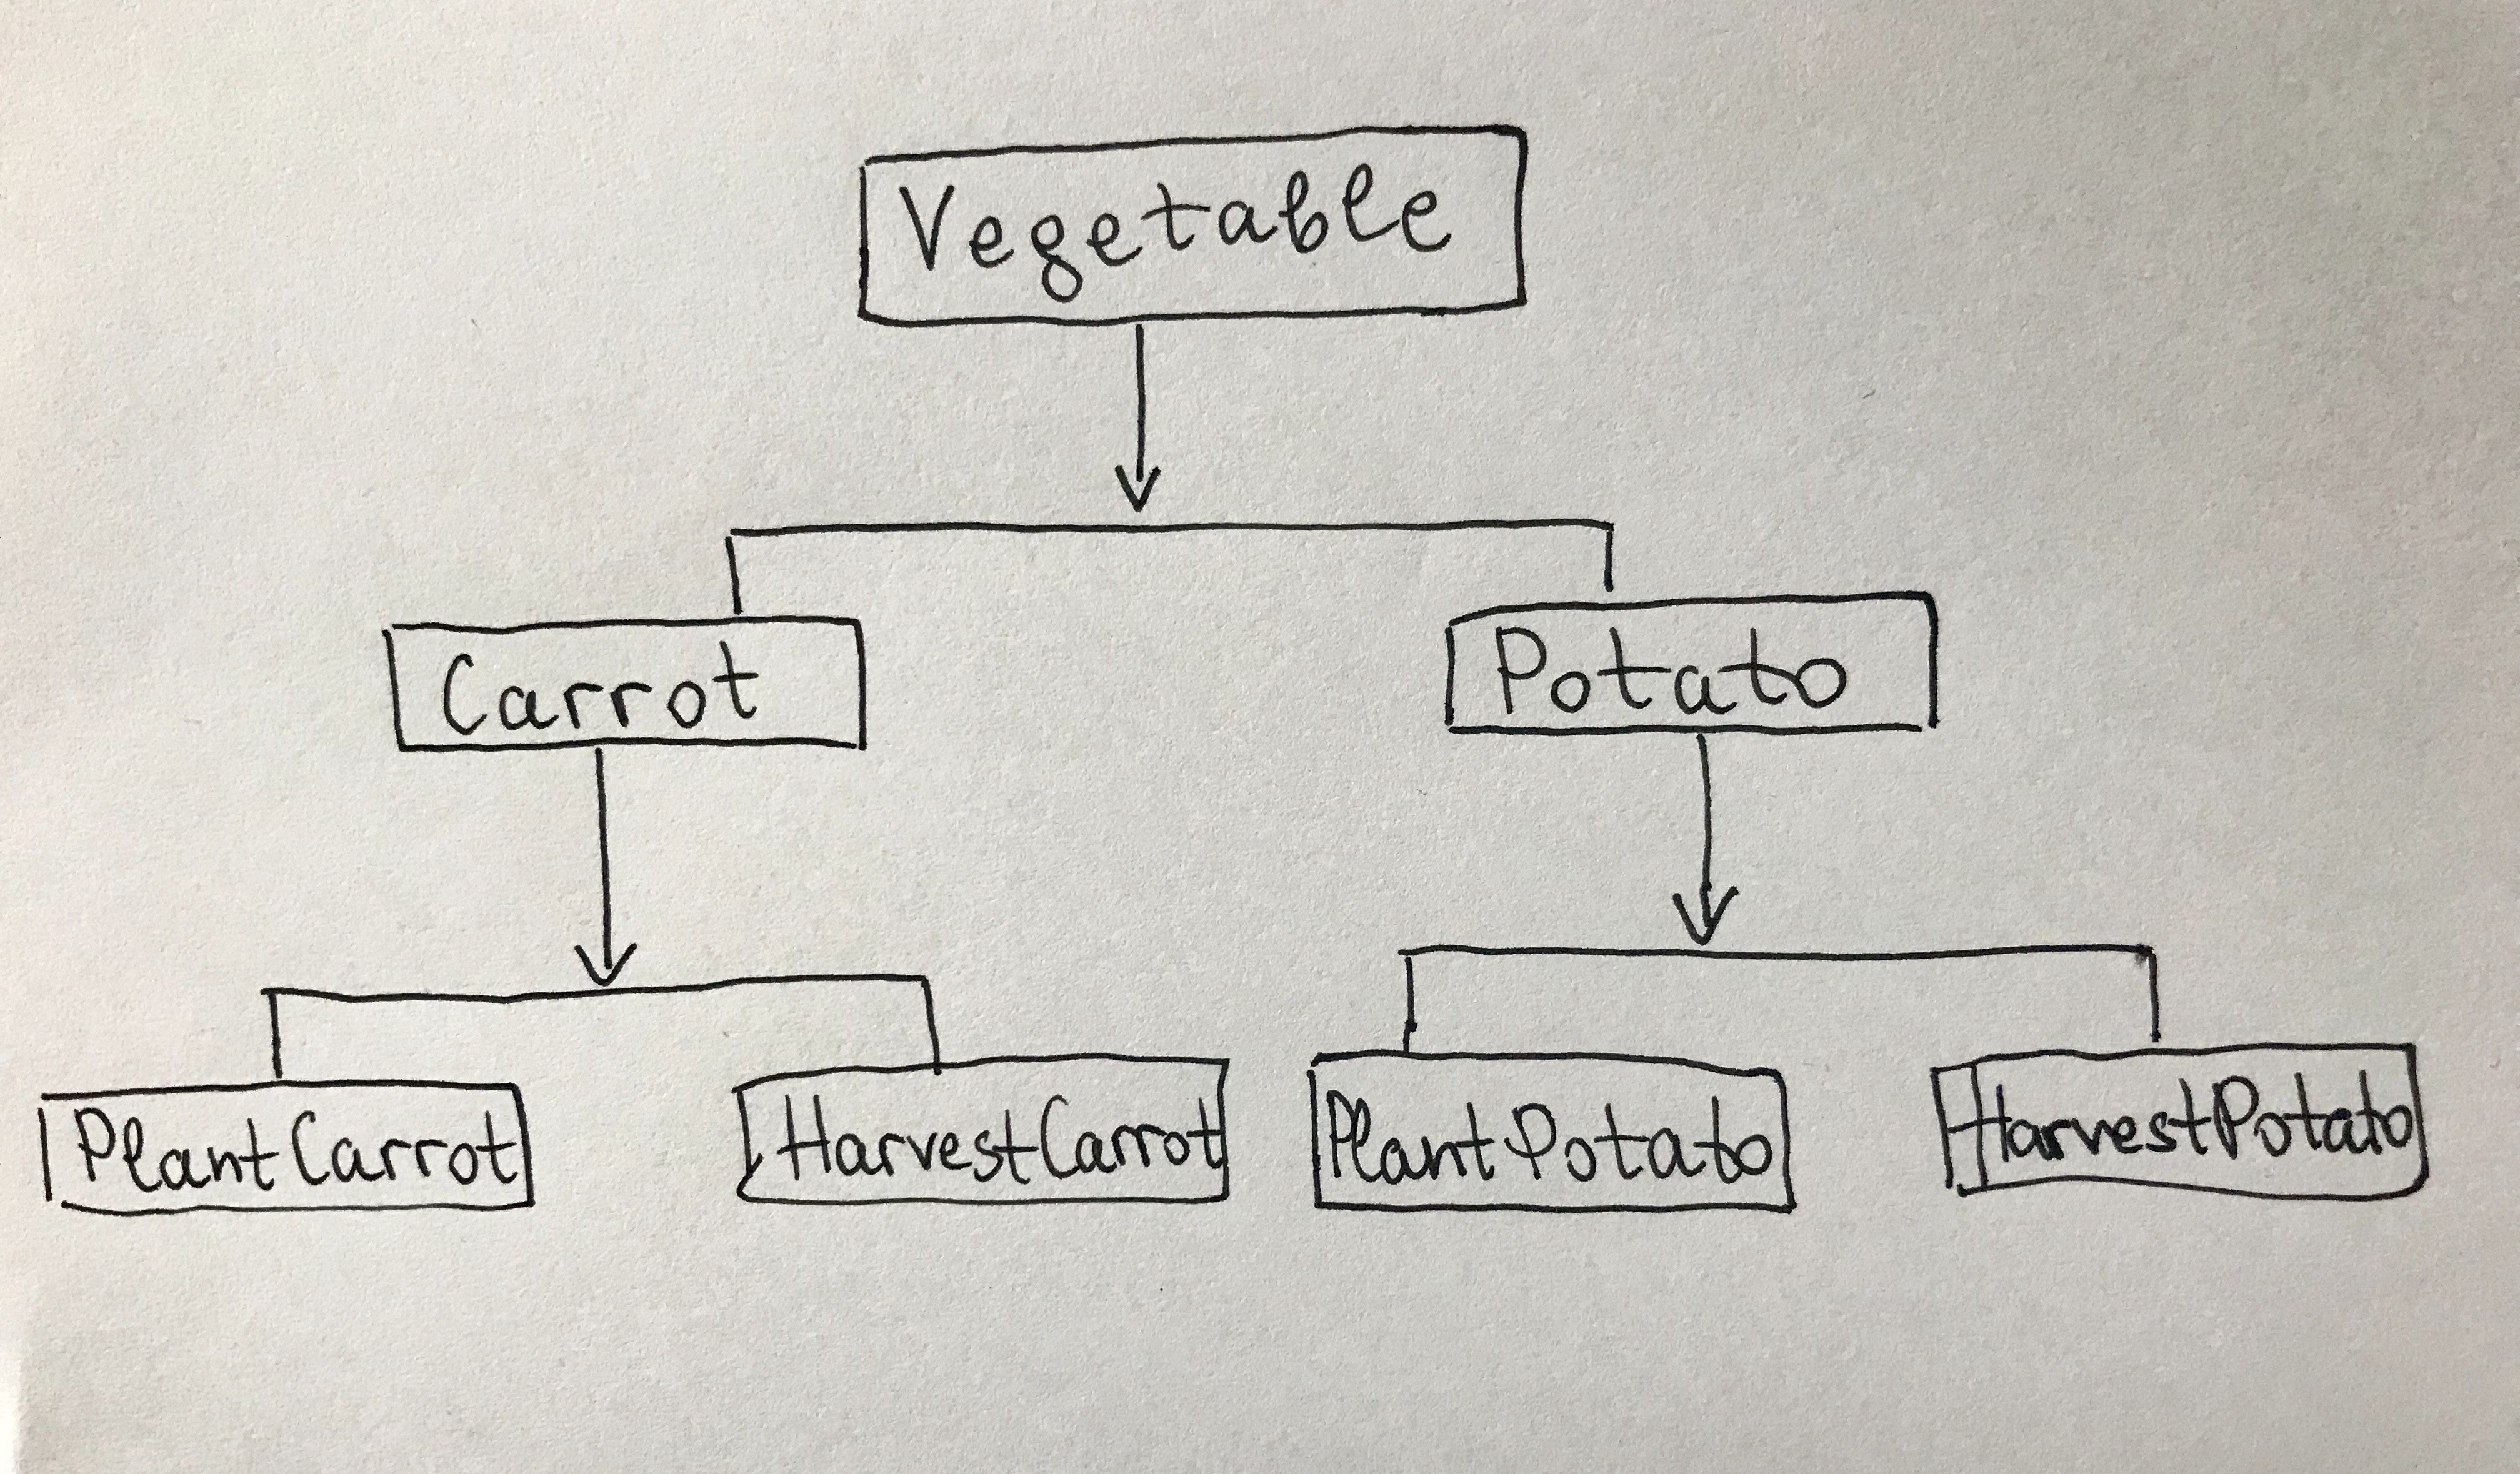 Vegetable
Carrot
Potato
PlantCarrot
HarvestCarrot
PlantPotato
HarvestPotato